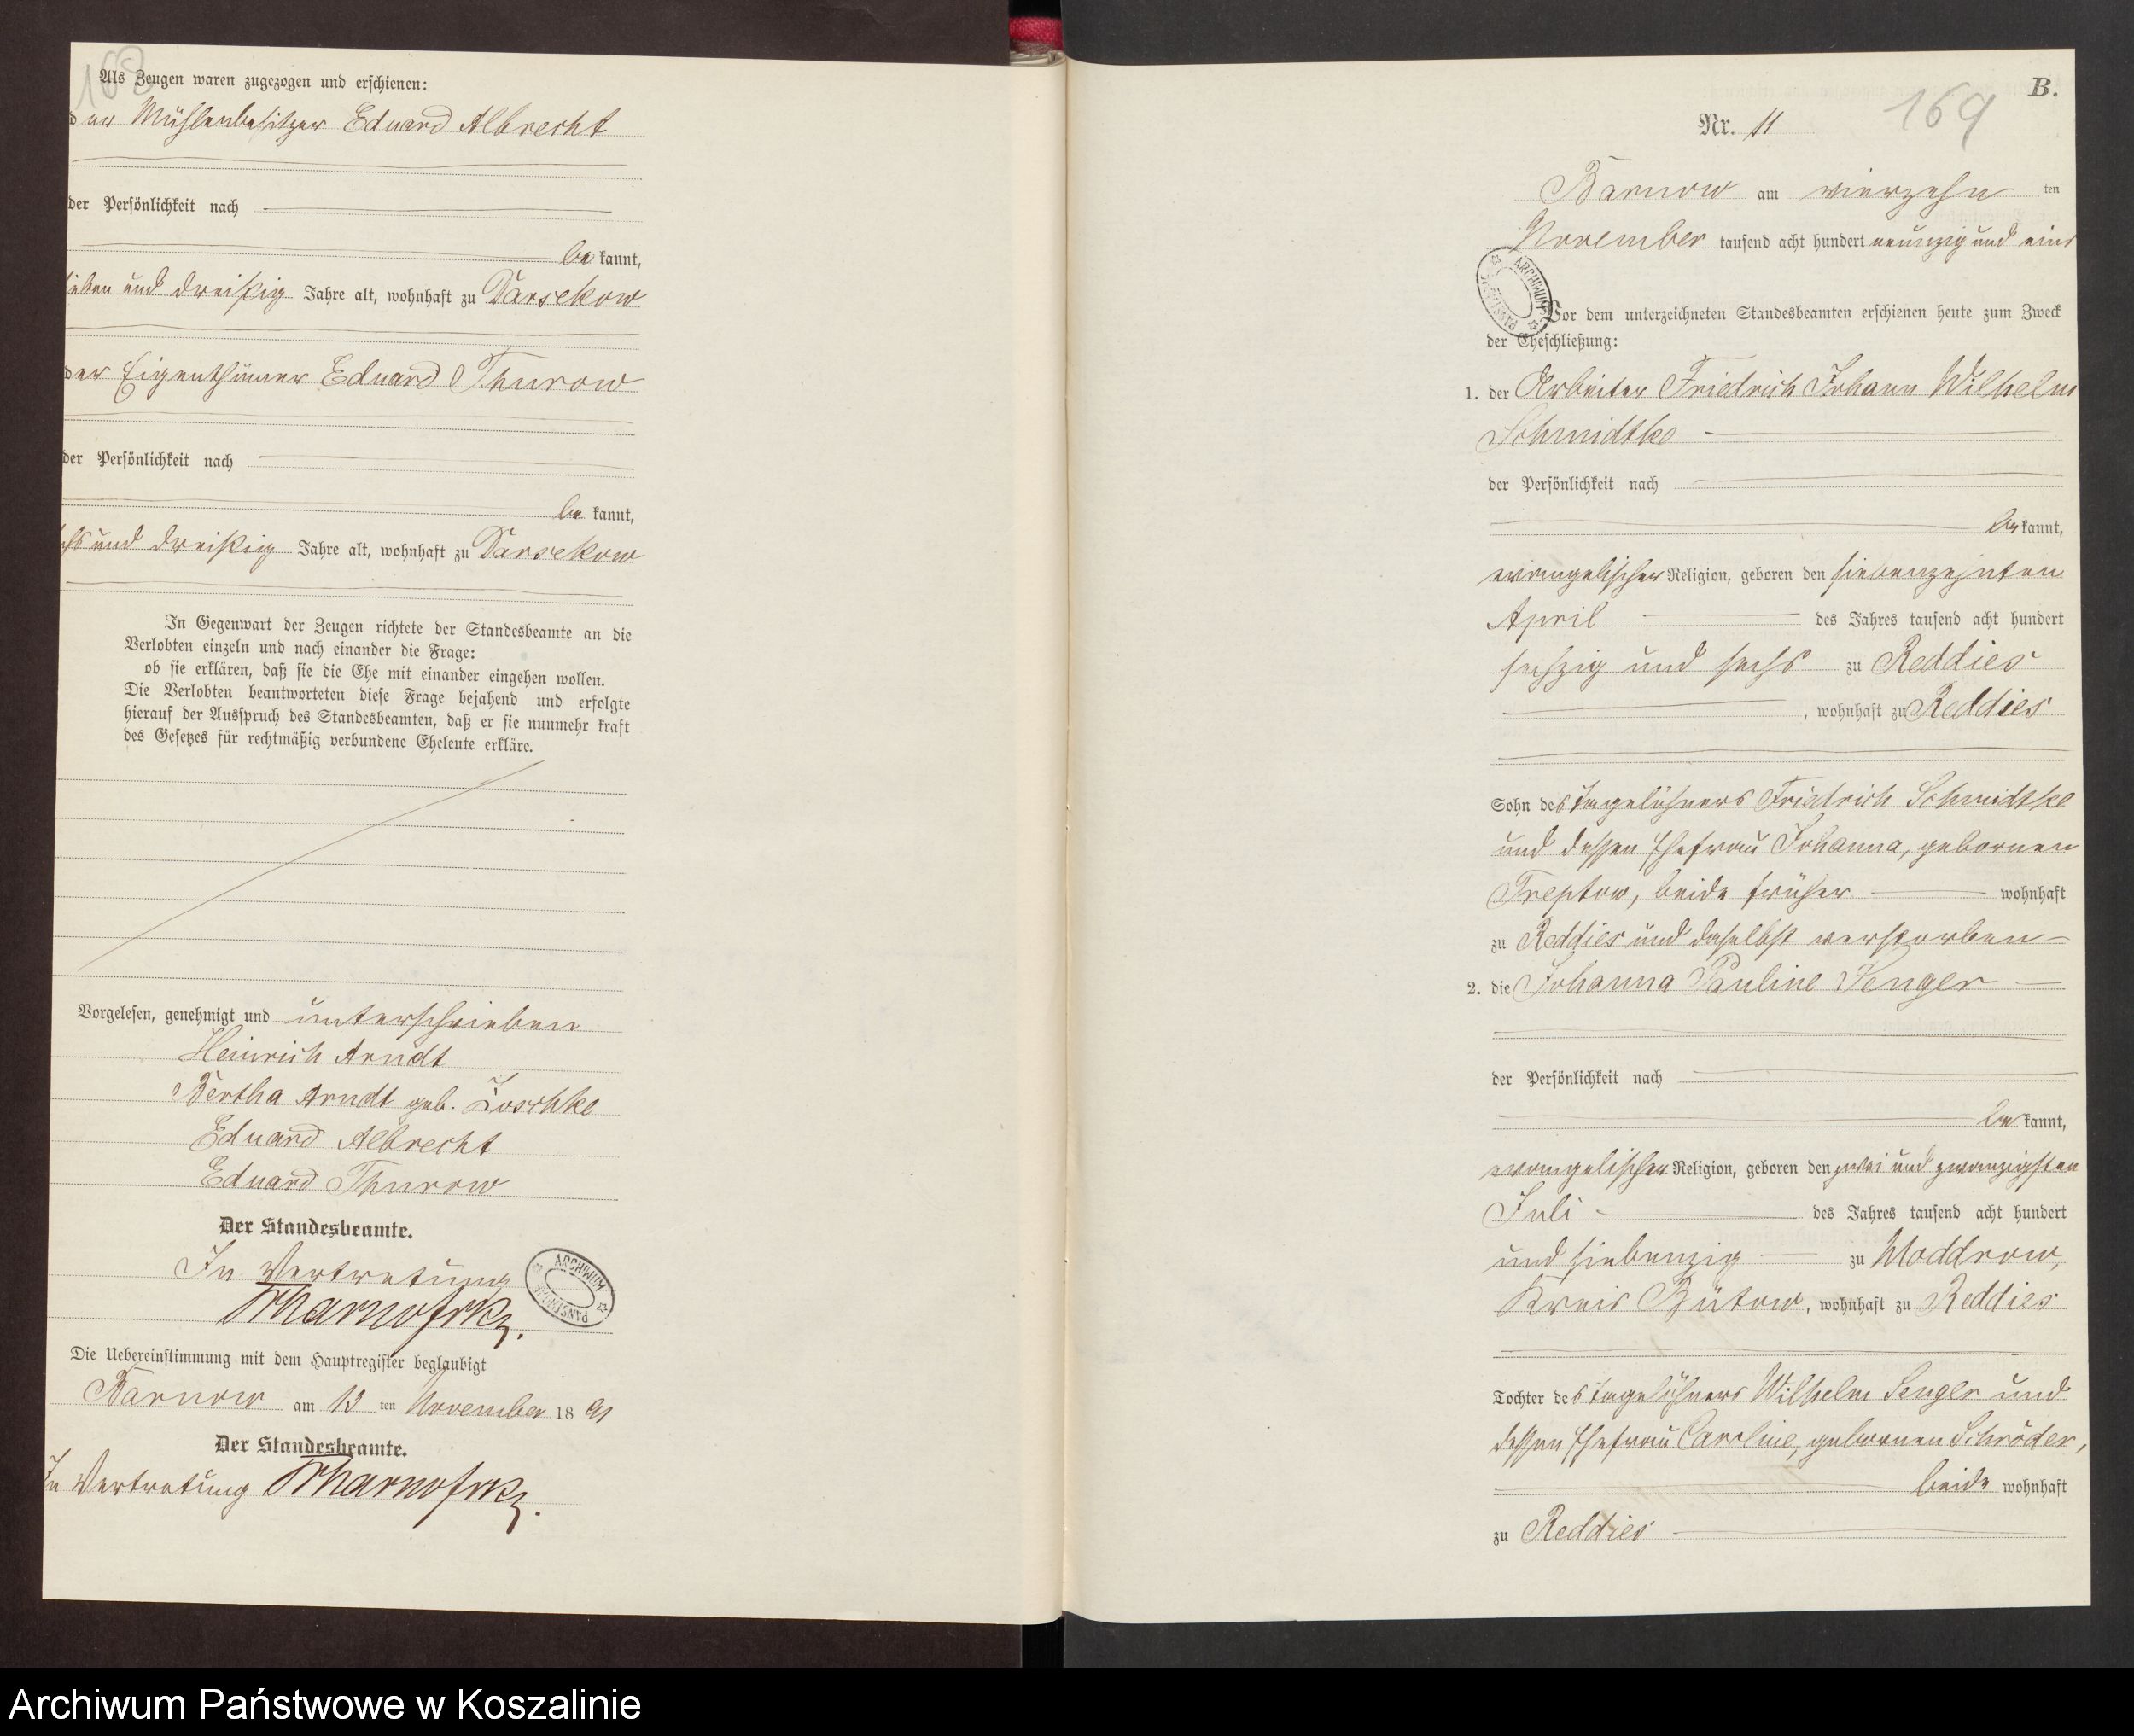 168
Als Zeugen waren zugezogen und erschienen:
der Mühlenbesitzer Eduard Albrecht
der Persönlichkeit nach
be kannt,
sieben und dreißig Jahre alt, wohnhaft zu Darsekow
der Eigenthümer Eduard Thurow
der Persönlichkeit nach
be kannt,
und dreißig Jahre alt, wohnhaft zu Darsekow
In Gegenwart der Zeugen richtete der Standesbeamte an die
Verlobten einzeln und nach einander die Frage:
ob sie erklären, daß sie die Ehe mit einander eingehen wollen.
Die Verlobten beantworteten diese Frage bejahend und erfolgte
hierauf der Ausspruch des Standesbeamten, daß er sie nunmehr kraft
des Gesetzes für rechtmäßig verbundene Eheleute erkläre.
Vorgelesen, genehmigt und unterschrieben
Heinrich Arndt
Bertha Arndt geb. Loschke
Eduard Albrecht
Eduard Thurow
Der Standesbeamte.
In Vertretung
ARCHIWUM PAŃSTWOWE
Die Uebereinstimmung mit dem Hauptregister beglaubigt
Barnow am 13 ten November 18 91
Der Standesbeamte.
In Vertretung
B.
Nr. 11
169
Barnow am vierzehn ten
November tausend acht hundert neunzig und eins
ARCHIWUM PAŃSTWOWE
Vor dem unterzeichneten Standesbeamten erschienen heute zum Zweck
der Eheschließung:
1. der Arbeiter Friedrich Johann Wilhelm
Schmidtke
der Persönlichkeit nach
be kannt,
evangelischer Religion, geboren den siebenzehnten
April des Jahres tausend acht hundert
sechzig und sechs zu Reddies
, wohnhaft zu Reddies
Sohn des Tagelöhners Friedrich Schmidtke
und dessen Ehefrau Johanna, gebornen
Treptow, beide früher wohnhaft
zu Reddies und daselbst verstorben
2. die Johanna Pauline Senger
der Persönlichkeit nach
be kannt,
evangelischer Religion, geboren den zwei und zwanzigsten
Juli des Jahres tausend acht hundert
und siebenzig zu Moddrow,
Kreis Bütow, wohnhaft zu Reddies
Tochter des Tagelöhners Wilhelm Senger und
dessen Ehefrau Caroline, gebornen Schröder,
beide wohnhaft
zu Reddies
Archiwum Państwowe w Koszalinie